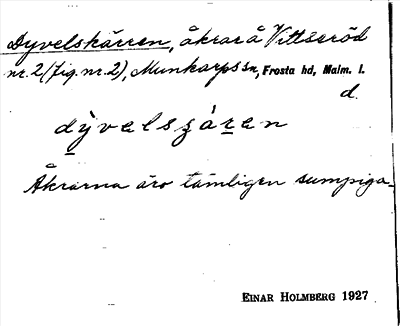 Dyvelskärren, åkrar å Vittseröd
nr. 2 (fig. nr. 2), Munkarps sn, Frosta hd, Malm. l.
d.
dỳvelsʒáren
Åkrarna äro tämligen sumpiga.
EINAR HOLMBERG 1927